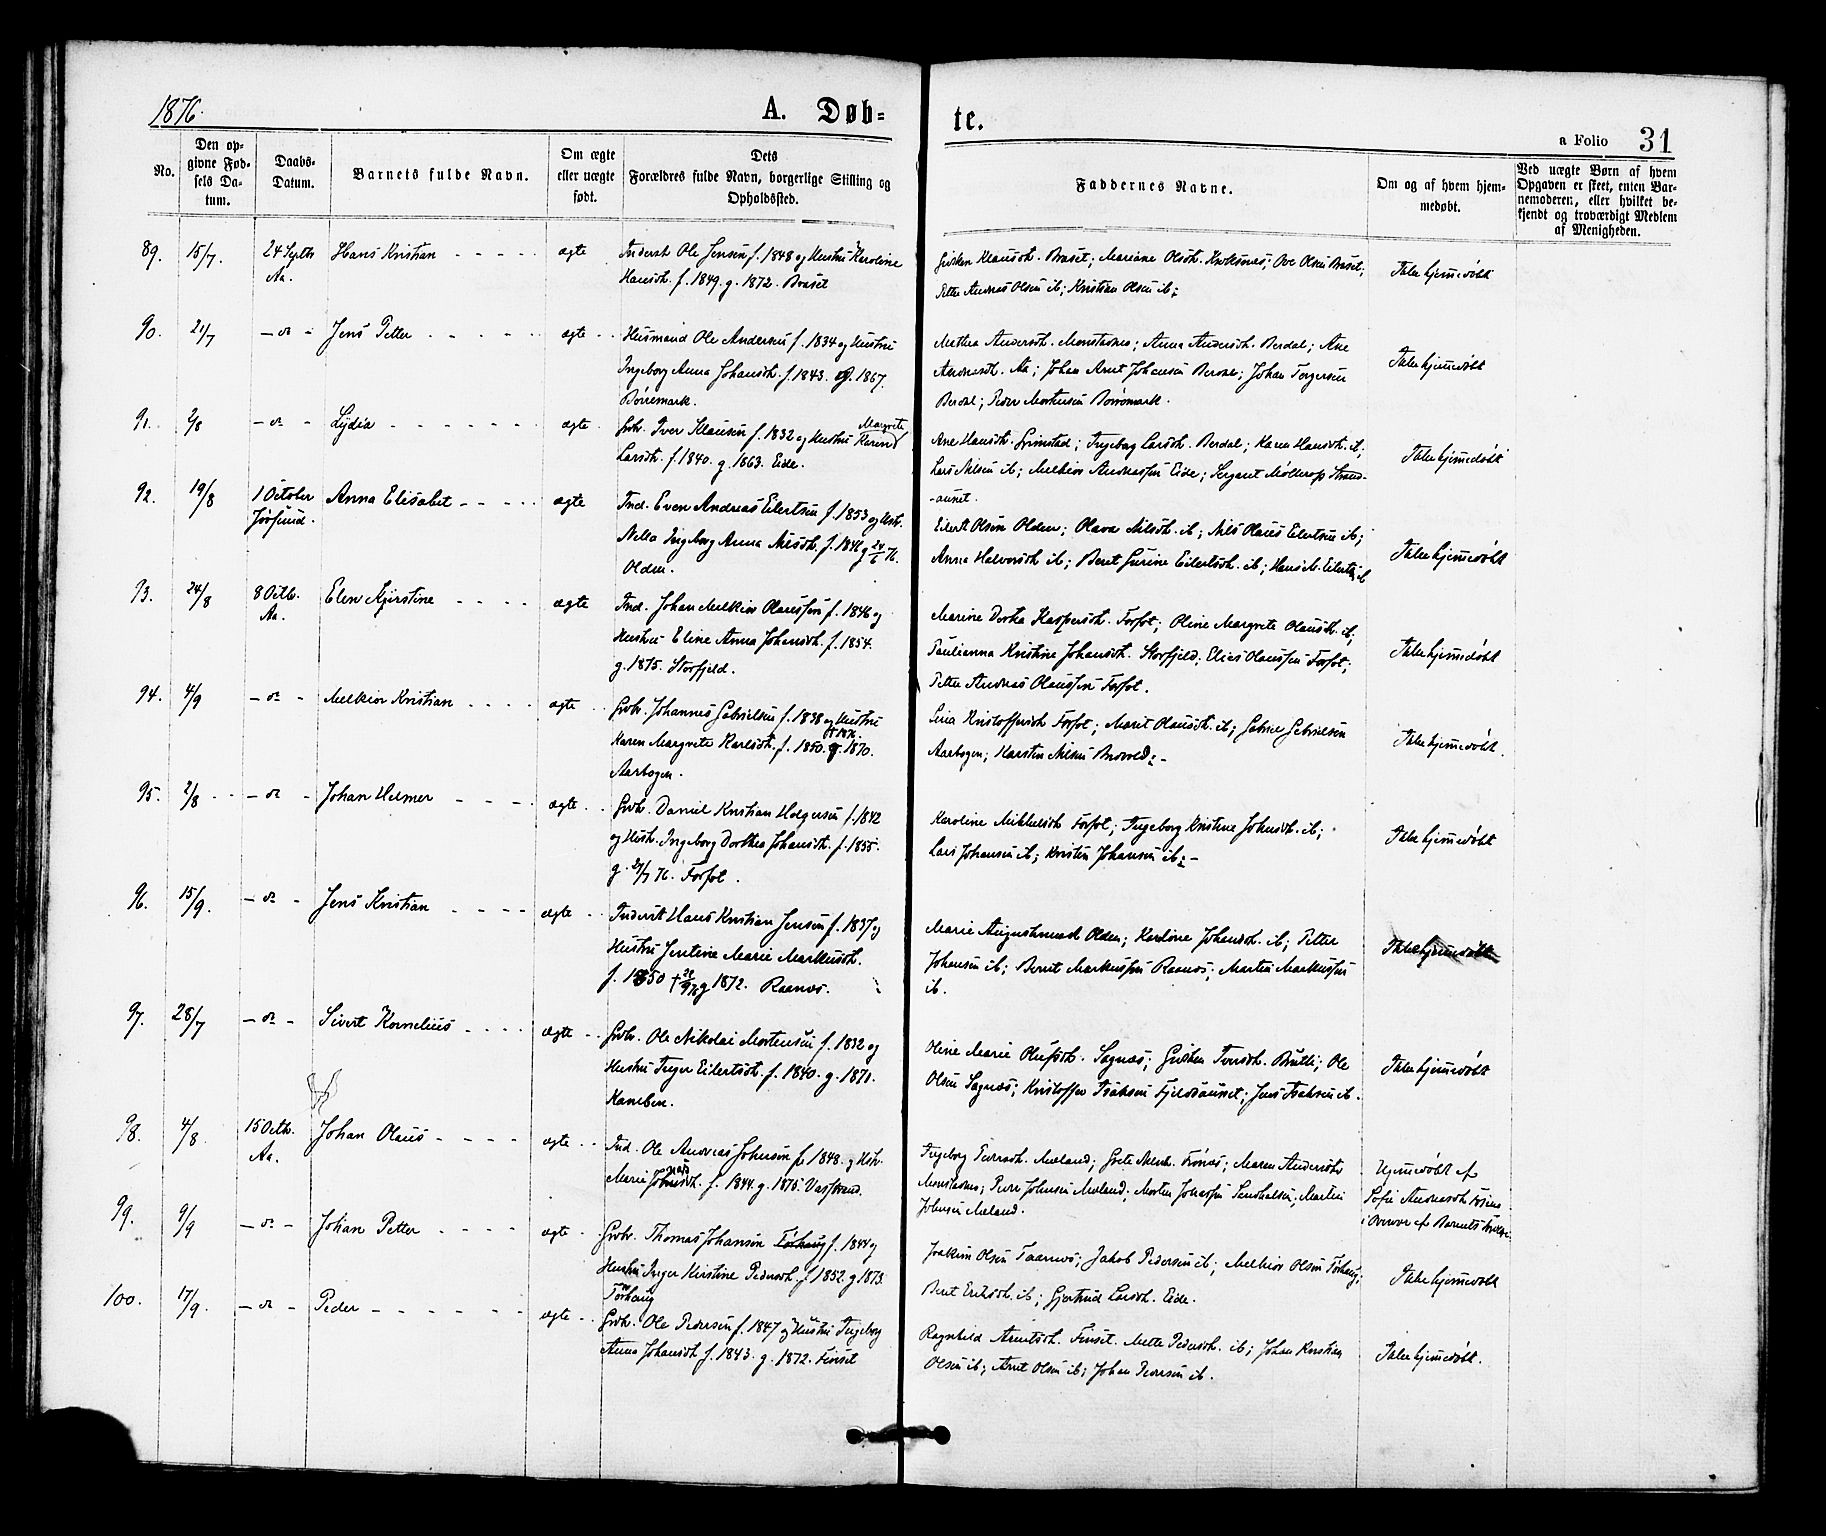 1876.
A. Døb-
te.
a Folio 31
No.
Den op-
givne Fød-
sels Da-
tum.
Daabs-
Datum.
Barnets fulde Navn.
Om ægte
eller uægte
født.
Dets
Forældres fulde Navn, borgerlige Stilling og
Opholdssted.
Faddernes Navne.
Om og af hvem hjem-
medøbt.
Ved uægte Børn af hvem
Opgaven er skeet, enten Bar-
nemoderen, eller hvilket be-
kjendt og troværdigt Medlem
af Menigheden.
89. 15/7. 24 Septb Hans Kristian ægte Inderst Ole Jensen f. 1848 og Hustru Karoline
Aa. Hansdt. f. 1849. g. 1872. Braset
Gurken Klausdt. Braset; Mareine Olsdt. Kroksnæs; Ove Olsen Braset;
Petter Andreas Olsen ib; Kristian Olsen ib;
Ikke hjemmedøbt
90. 21/7 - do - Jens Petter ægte Husmand Ole Andersen f. 1834 og Hustru
Ingeborg Anna Johansdt. f. 1843. g. 1867.
Børremark.
Mathea Andersdt. Monstadnes; Anna Andersdt. Berdal; Ane
Andreasdt. Aa; Johan Arnt Johansen Berdal; Johan Torgersen
Berdal; Peder Mortensen Børremark.
Ikke hjemmedøbt
91. 2/8 - do - Lydia ægte Gbr. Iver Klausen f. 1832 og Hustru Karen Margrete
Larsdt. f. 1840. g. 1863. Eide.
Ane Hansdt. Grimstad; Ingeborg Larsdt. Berdal; Karen Hansdt. ib;
Lars Nilsen ib; Melkior Andreassen Eide; Sergeant Møllerop Strand-
-aunet.
Ikke hjemmedøbt
92. 19/8 1 October Anna Elisabet ægte Ind. Even Andreas Eilertsen f. 1853 og Hstr.
Jøssund. Nella Ingeborg Anna Nilsdt. f. 1846 g 24/6 76.
Olden.
Eilert Olsen Olden; Olava Nilsdt. ib; Nils Olaus Eilertsen ib;
Anna Halvorsdt ib; Beret Gurine Eilertsdt. ib; Hans M. Eilertsen ib
Ikke hjemmedøbt
93. 24/8 8 Octb. Elen Kjirstine ægte Ind. Johan Melkior Olaussen f. 1846 og
Aa. Hustru Eline Anna Johansdt. f. 1854.
g. 1875. Storfjeld.
Marine Dorthea Kaspersdt. Forfot; Oline Margrete Olausdt. ib;
Paulianna Kristine Johansdt. Storfjeld; Elias Olaussen Forfot;
Petter Andreas Olaussen Forfot.
Ikke hjemmedøbt
94. 4/9 - do - Melkior Kristian ægte Gbr. Johannes Gabrielsen f. 1838 og Hustru
Karen Margrete Karlsdt. f. 1850. g. 1870.
Aarbogen.
Lina Kristoffersdt Forfot; Marit Olausdt. ib; Gabriel Gabrielsen
Aarbogen; Karsten Nilsen Bredvold;
Ikke hjemmedøbt.
95. 2/8 - do - Johan Helmer ægte Gbr. Daniel Kristian Holgersen f. 1842
og Hustr. Ingeborg Dorthea Johansdt. f. 1855.
g. 27/7 76. Forfot.
Karoline Mikkelsdt Forfot; Ingeborg Kristine Johansdt. ib;
Lars Johansen ib; Kristen Johansen ib;
Ikke hjemmedøbt
96. 15/9. - do - Jens Kristian ægte Inderst Hans Kristian Jensen f. 1837 og
Hustru Jentine Marie Markusdt.
f. 1850 g 1872. Raanæs.
Marie Augustinusd Olden; Karoline Johansdt. ib; Petter
Johansen ib; Bernt Markussen Raanæs; Martin Markussen
ib.
Ikke hjemmedøbt
97. 28/7 - do - Sivert Kornelius ægte Gbr. Ole Nikolai Mortensen f. 1832 og
Hustru Inger Eilertsdt. f. 1840. g. 1871.
Oline Marie Olufsdt. Sagnæs; Gurken Iversdt. Brulli; Ole
Olsen Sagnæs; Kristoffer Isaksen Fjeldsaunet; Jens Isaksen ib.
Ikke hjemmedøbt
98. 4/8. 15 Octb. Johan Olaus ægte Ind. Ole Andreas Johnsen f. 1848. og Hstr.
Aa. Marie Johnsdt. f. 1844. g. 1875.
Ingeborg Pedersdt. Mæland; Grete Nilsdt. Frønæs; Maren Andersdt
Monstadnes; Peder Johnsen Mæland; Morten Johnsen; Martin
Johnsen Mæland.
Hjemmedøbt af
Sofie Andreasdt
i Overvær af Barnets
99. 9/9 - do - Johan Petter ægte Gbr. Thomas Johansen Tørhaug f. 1844 og
Hustru Inger Kirstine Pedersdt. f. 1852. g 1873
Tørhaug
Joakim Olsen Taarnes; Jakob Pedersen ib; Melkior Olsen Tørhaug;
Beret Eriksdt. ib; Gjertrud Larsdt. Eide.
Ikke hjemmedøbt
100. 17/9. - do - Peder ægte Gbr. Ole Pedersen f. 1847 og Hustru Ingeborg
Anna Johansdt f. 1843. g. 1872. Finset
Ragnhild Arntsdt. Finset. Mette Pedersdt. ib; Johan Kristian
Olsen ib; Arnt Olsen ib; Johan Pedersen ib.
Ikke hjemmedøbt.